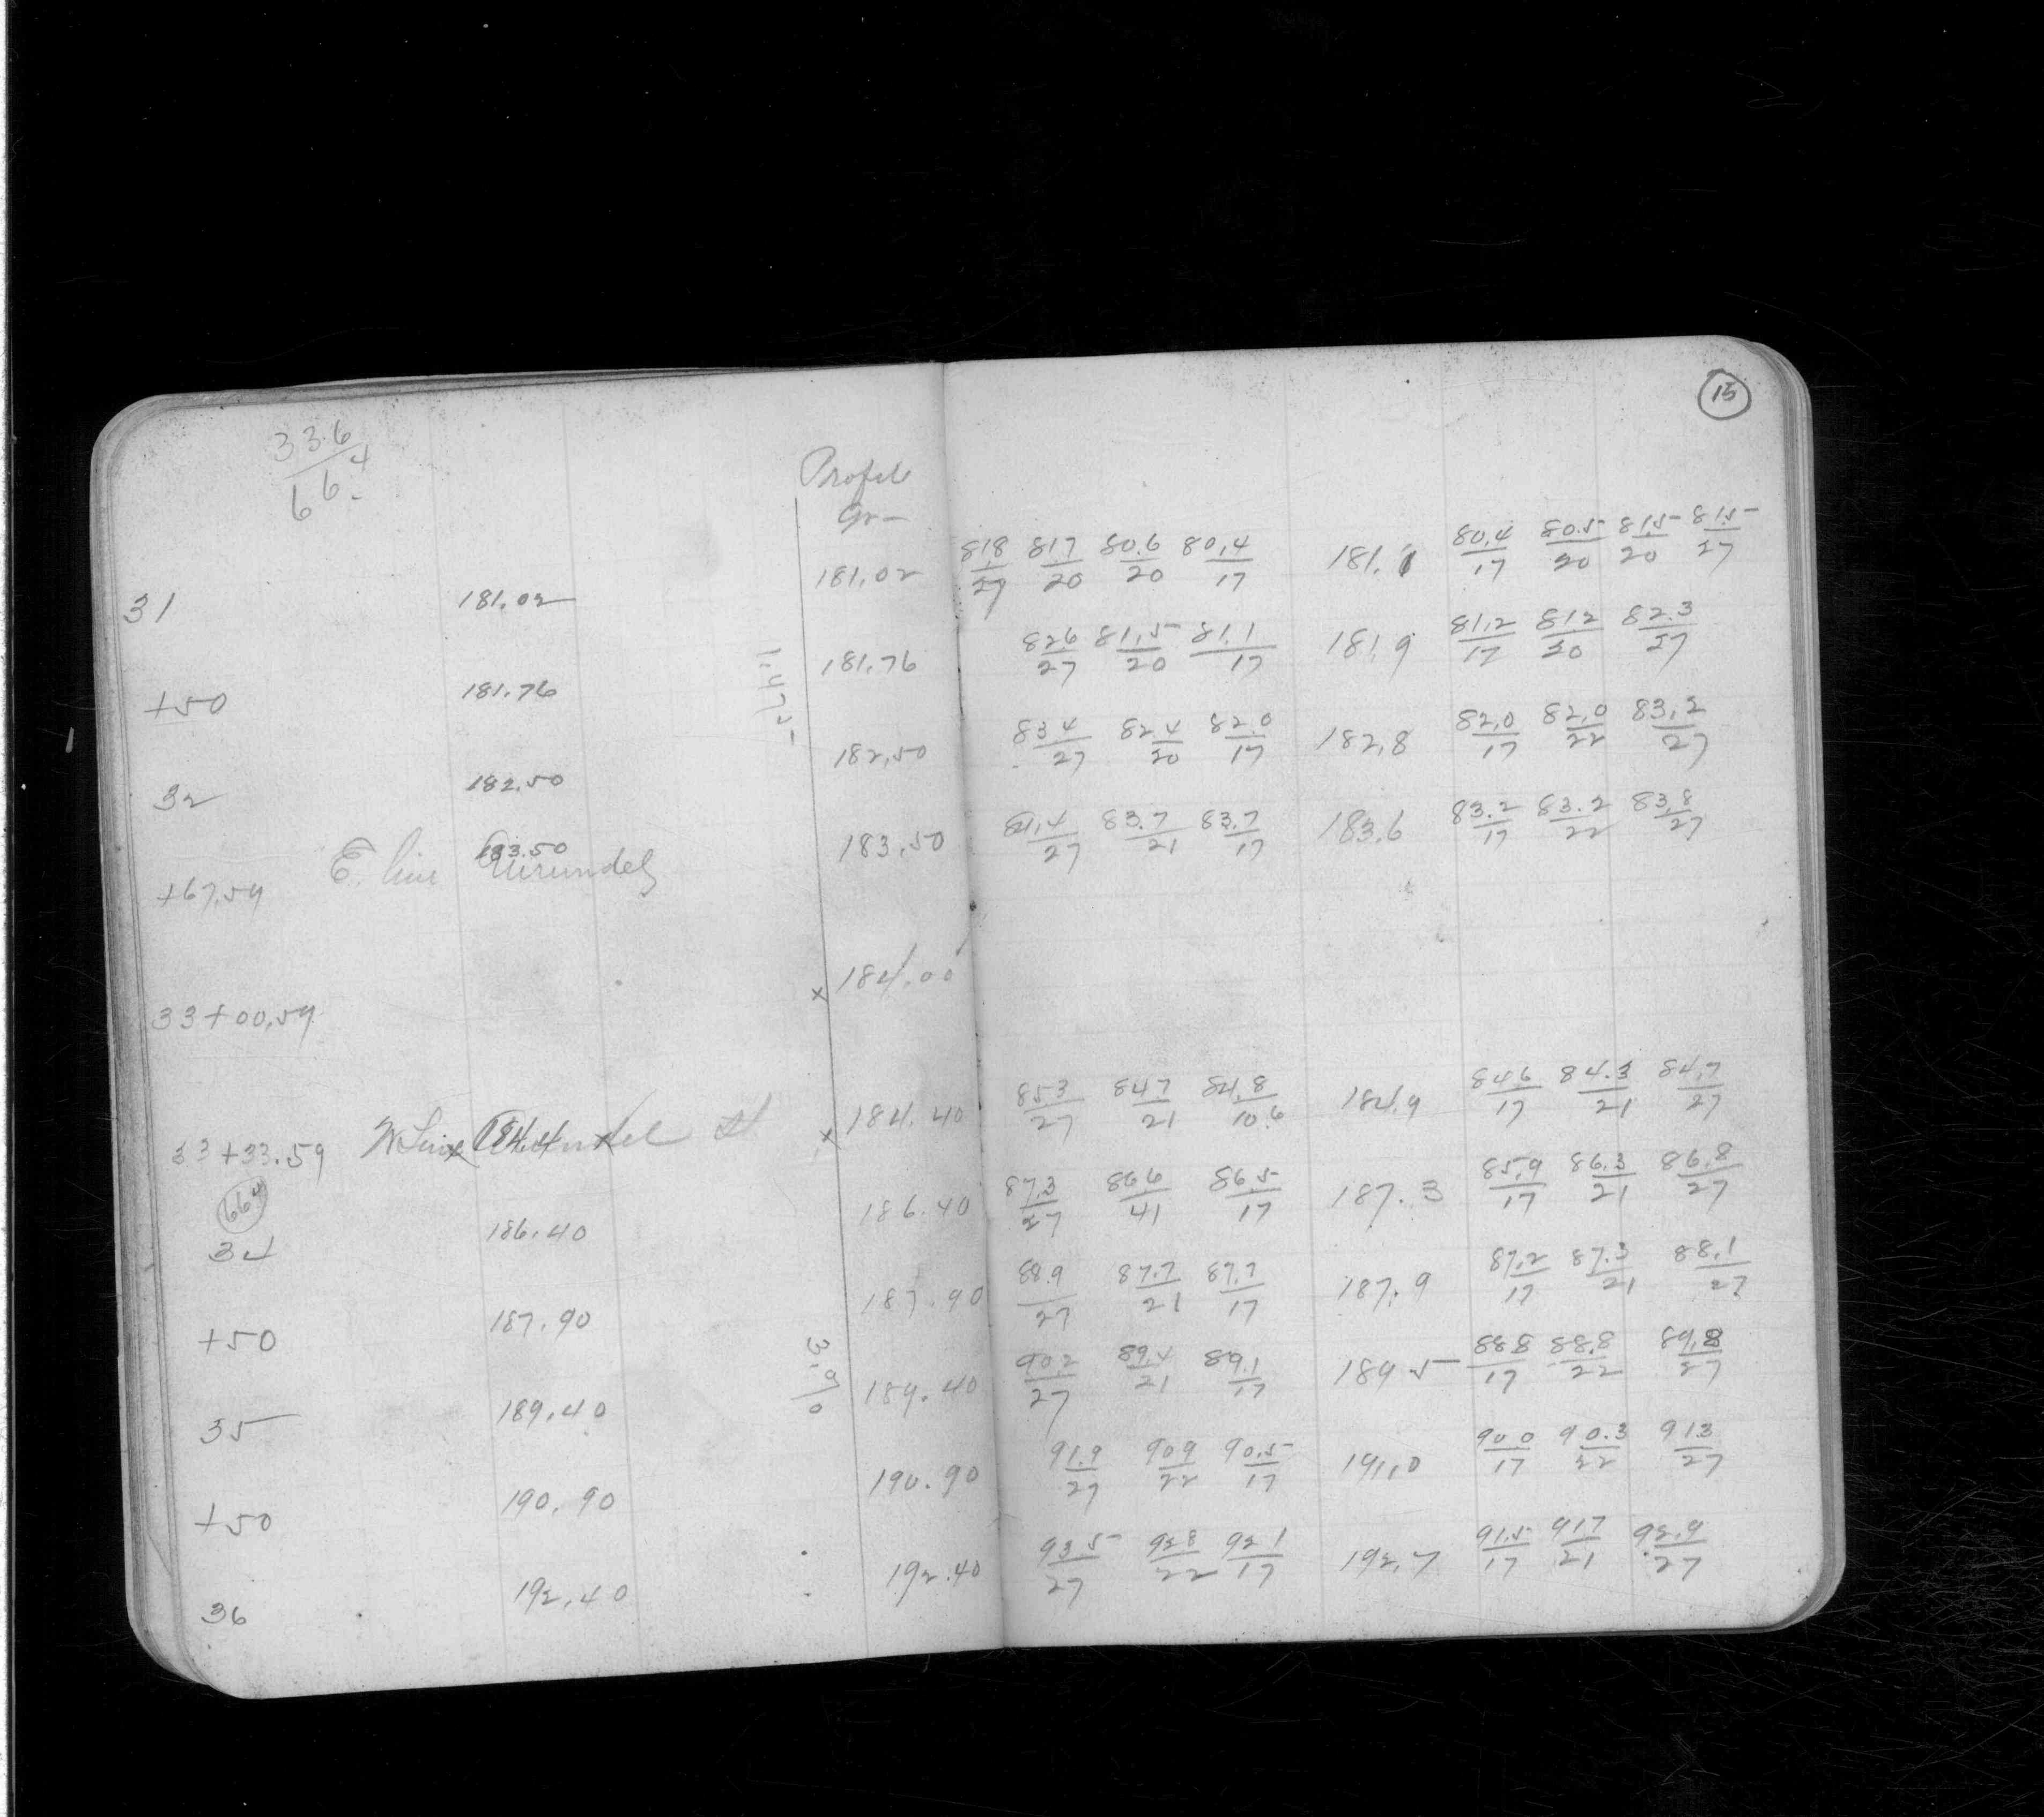 15
33.6/66.4
Profile
Gr-
31 181.02 181.02 81.8/27 81.7/20 80.6/20 80.4/17 181.1 80.4/17 80.5/20 81.5/20 81.5/27
+50 181.76 1.475 181.76 82.6/27 81.5/20 81.1/17 181.9 81.2/17 81.2/20 82.3/27
32 182.50 182.50 83.4/27 82.4/20 82.0/17 182.8 82.0/17 82.0/22 83.2/27
+67.59 E. line 183.50 Arundel 183.50 84.4/27 83.7/21 83.7/17 183.6 83.2/17 83.2/22 83.8/27
33+00.59 x 184.00
33+33.59 W Line 184.4 Arundel St x 184.40 85.3/27 84.7/21 84.8/10.6 184.9 84.6/17 84.3/21 84.7/27
66.4
34 186.40 186.40 87.3/27 86.6/41 86.5/17 187.3 85.9/17 86.3/21 86.8/27
+50 187.90 187.90 88.9/27 87.7/21 87.7/17 187.9 87.2/17 87.3/21 88.1/27
35 189.40 3.% 189.40 90.2/27 89.4/21 89.1/17 189.5 88.8/17 88.8/22 89.8/27
+50 190.90 190.90 91.9/27 90.9/22 90.5/17 191.0 90.0/17 90.3/22 91.3/27
36 192.40 192.40 93.5/27 92.8/22 92.1/17 192.7 91.5/17 91.7/21 92.9/27